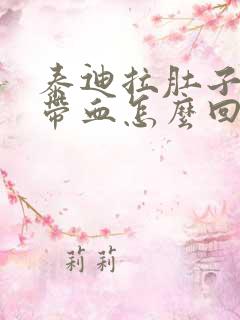 泰迪拉肚子
帶血怎麼回
莉莉